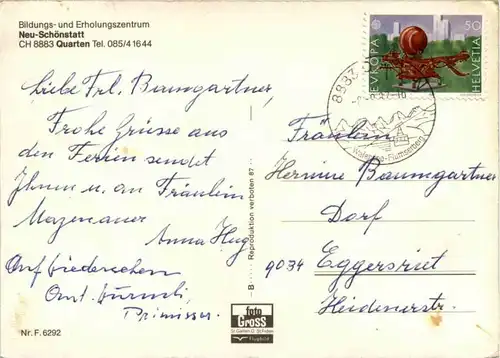 Bildungs- und Erholungszentrum
Neu-Schönstatt
CH 8883 Quarten Tel. 085/4 16 44
Liebe Frl. Baumgartner,
Frohe Grüsse aus
den Ferien sendet
Ihnen u. an Fräulein
Mazenauer
Anna Hug
Auf Wiedersehen
Primissar.
Nr. F. 6292
B
Reproduktion verboten 87
foto
Gross
St.Gallen
Flugbild
EUROPA
50
HELVETIA
8883
Fräulein
Hermine Baumgartner
Dorf
9034 Eggersriet
Heidenerstr.